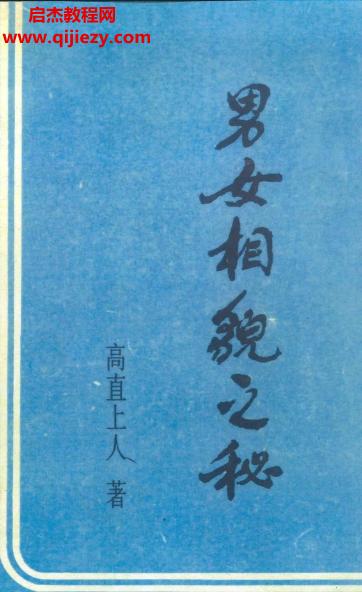 启杰教程网
www.qijiezy.com
男女相貌之秘
高直上人 著